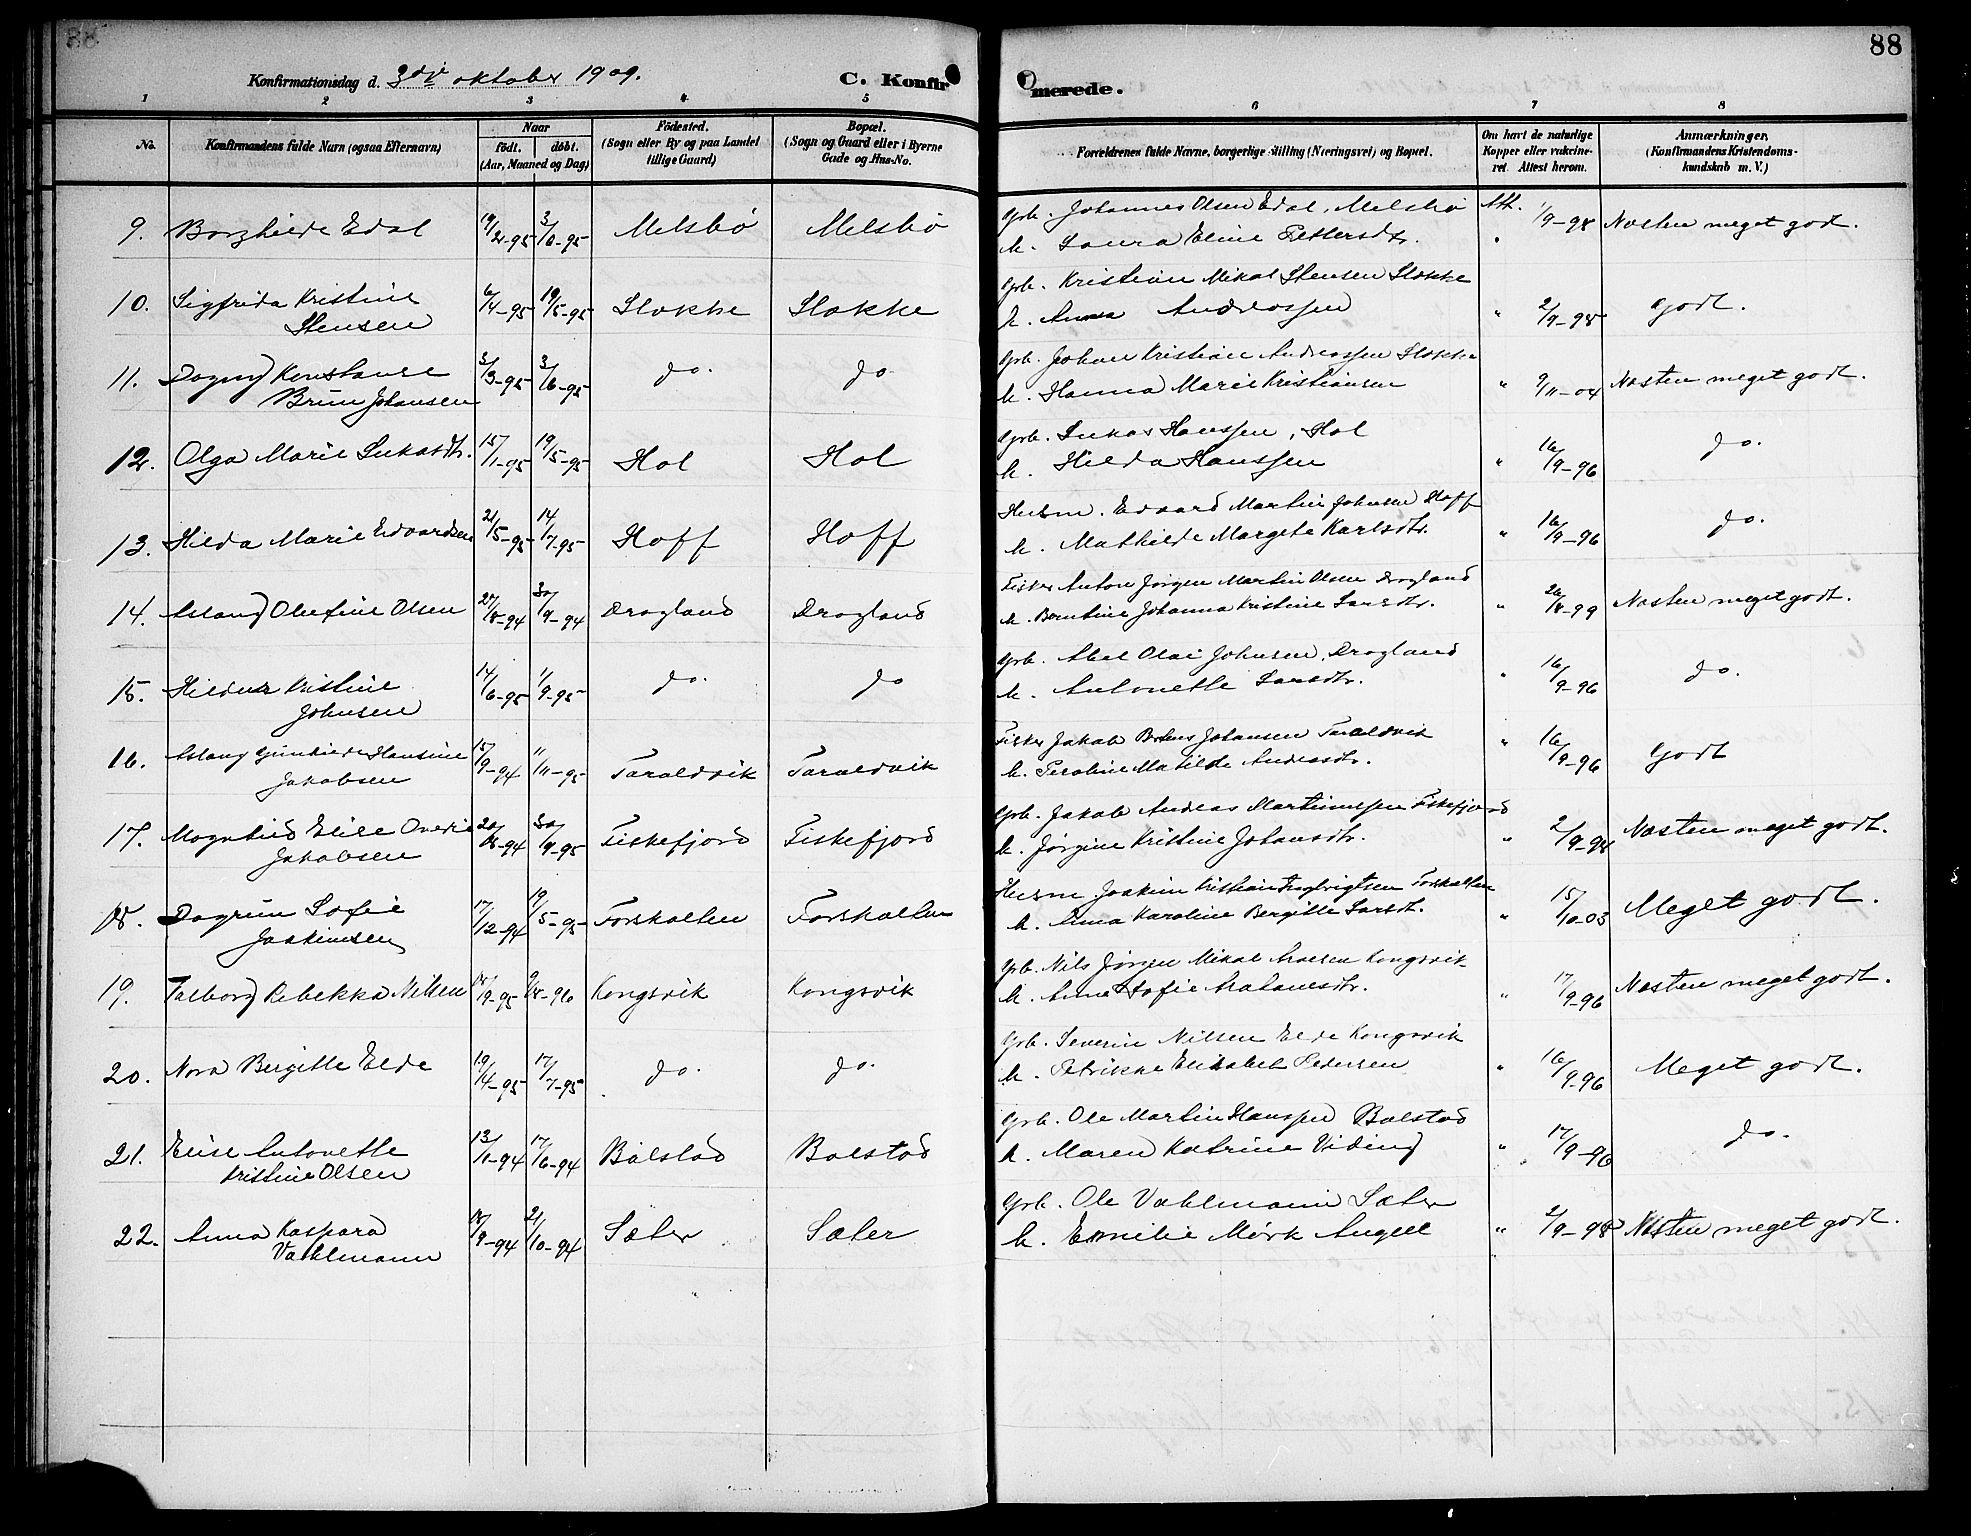 88
Konfirmationsdag d. 3die oktober 1909.
C. Konfirmerede.
1 2 3 4 5 6 7 8
No.
Konfirmandens fulde Navn (ogsaa Efternavn)
Naar
födt. döbt.
(Aar, Maaned og Dag)
Födested.
(Sogn eller By og paa Landet
tillige Gaard)
Bopæl.
(Sogn og Gaard eller i Byerne
Gade og Hus-No.
Forældrenes fulde Navne, borgerlige Stilling (Næringsvei) og Bopæl.
Om havt de naturlige
Kopper eller vakcine-
ret. Attest herom.
Anmærkninger.
(Konfirmandens Kristendoms-
kundskab m. V.)
9. Borghilde Edal 19/2-95 3/6-95 Melsbö Melsbö Grb. Johannes Olsen Edal, Melsbö Att. 1/9-98 Næsten meget godt.
h. Laura Eline Pettersdtr.
10. Sigfrida Kristine 6/4-95 19/5-95 Slokke Slokke Grb. Kristian Mikal Stensen Slokke " 2/9-98 Godt.
Stensen h. Anna Andreassen
11. Dagny Konstanse 3/3-95 3/6-95 do. do Grb. Johan Kristian Andreassen Slokke " 9/11-04 Næsten meget godt.
Brun Johansen h. Hanna Marie Kristiansen
12. Olga Marie Lukasdtr. 15/1-95 19/5-95 Hol Hol Grb. Lukas Hanssen, Hol " 16/9-96 do.
h. Hilda Hanssen
13. Hilda Marie Edvardsen 21/5-95 14/7-95 Hoff Hoff Husm. Edvard Martin Johnsen Hoff " 16/9-96 do.
h. Mathilde Margete Karlsdtr.
14. Aslaug Olefine Olsen 27/8-94 30/9-94 Dragland Dragland Fisker Anton Jørgen Martin Olsen Dragland " 26/8-99 Næsten meget godt.
h. Berntine Johanna Kristine Larsdtr.
15. Hildur Kristine 14/6-95 1/9-95 do. do Grb. Abel Olai Johnsen, Dragland " 16/9-96 do.
Johnsen h. Antonette Larsdtr.
16. Aslaug Gunhilde Hansine 15/9-94 "/11-95 Taraldvik Taraldvik Fisker Jakob Johansen Taraldvik " 16/9-96 Godt
Jakobsen h. Peroline Matilde Andersdtr.
17. Magnhild Elise 20/8-94 30/9-95 Fiskefjord Fiskefjord Grb. Jakob Andreas Martinussen Fiskefjord " 2/9-98 Næsten meget godt.
Jakobsen h. Jørgine Kristine Johansdtr.
18. Dagrun Sofie 17/12-94 19/5-95 Forskalten Forskalten Husm Joakim Kristian Forskalten " 15/10-03 Meget godt.
Joakimsen h. Anna Karoline Bergitte Larsdt.
19. Valborg Rebekka Nilsen 18/9-95 9/8-96 Kongsvik Kongsvik Grb. Nils Jørgen Mikal Kongsvik " 17/9-96 Næsten meget godt.
h. Anne Sofie
20. Nora Bergitte Elde 19/4-95 17/7-95 do. do. Grb. Severin Nilsen Elde Kongsvik " 16/9-96 Meget godt.
h. Petrikke Elisabet Pedersen
21. Elise Antonette 13/1-94 17/6-94 Balstad Balstad Grb. Ole Martin Hanssen Balstad " 17/9-96 do.
Kristine Olsen h. Maren Katrine Viding
22. Anna Kaspara 18/9-94 21/10-94 Sæter Sæter Grb. Ole Vahlmann Sæter " 2/9-98 Næsten meget godt.
Vahlmann h. Emilie Mörk Angell